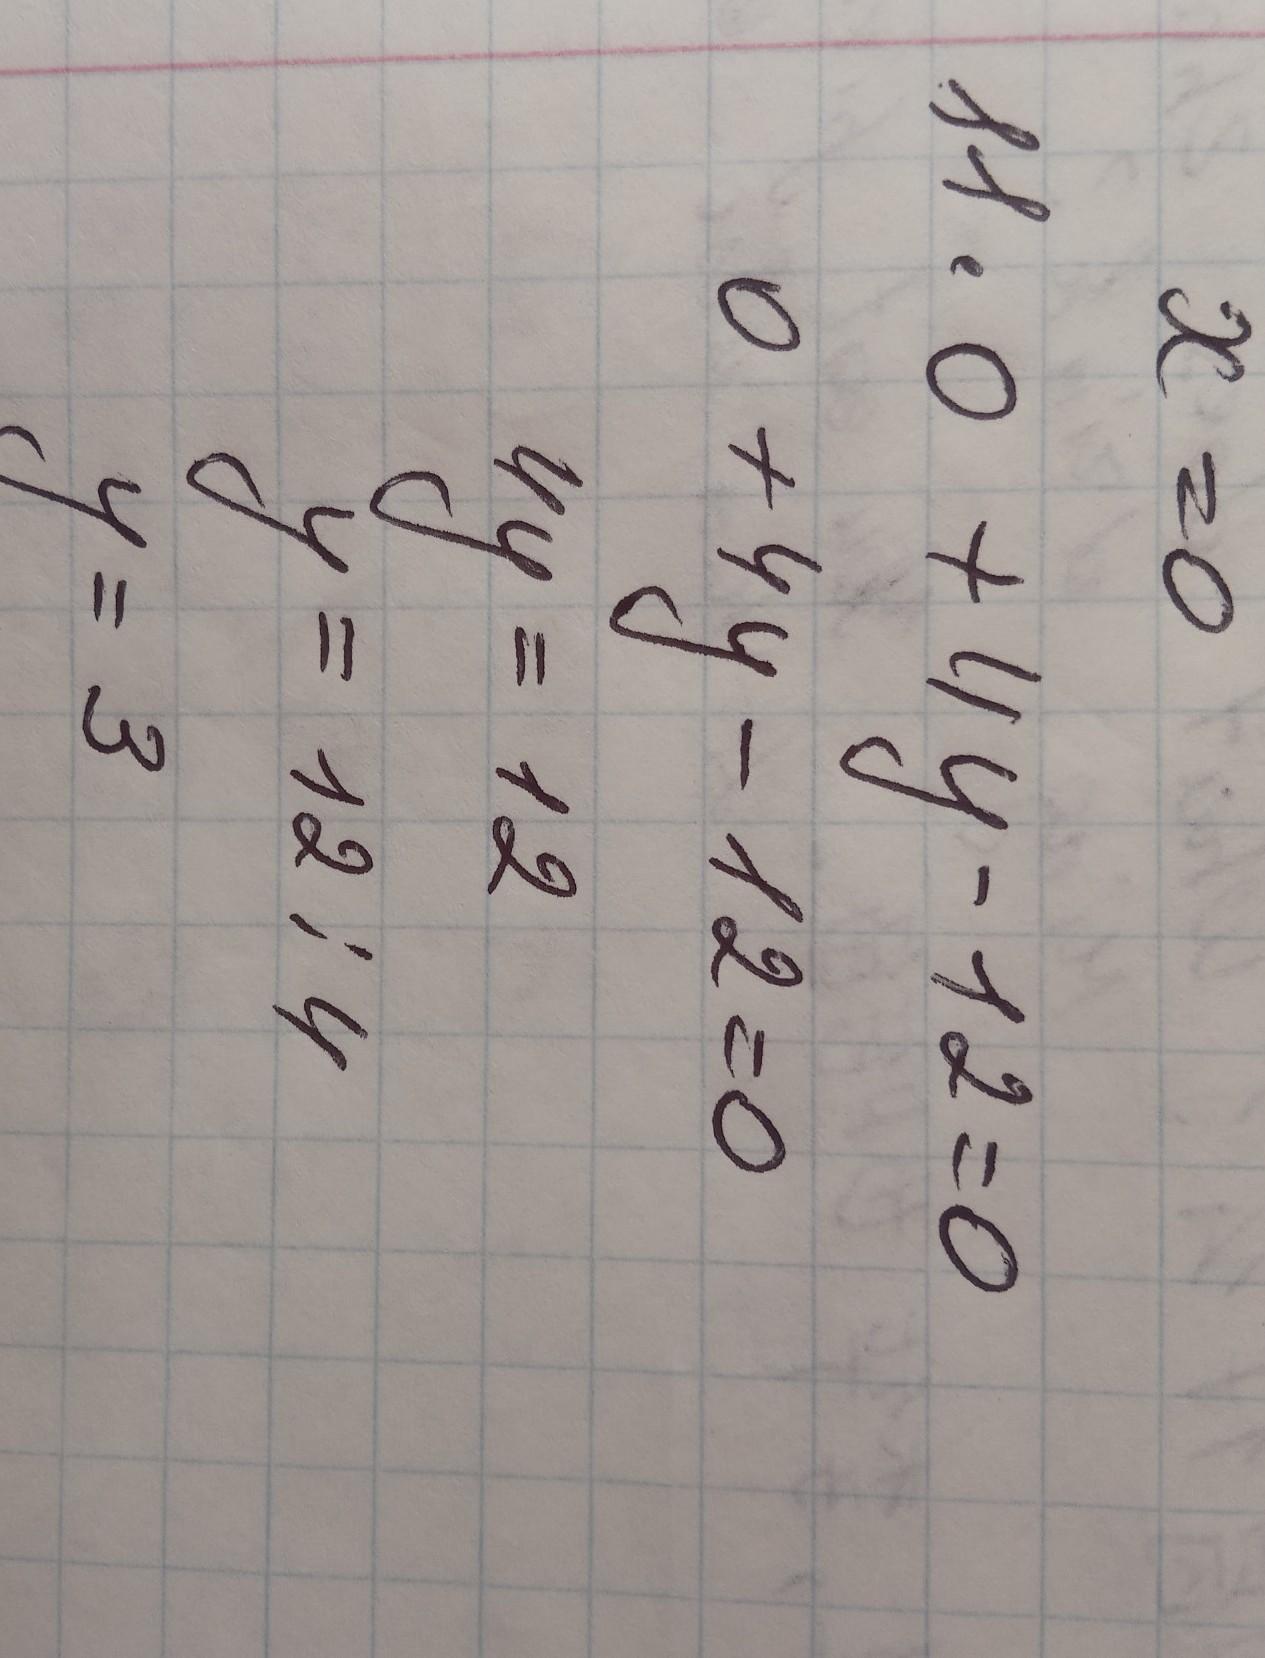 x = 0
11 · 0 + 4y - 12 = 0
0 + 4y - 12 = 0
4y = 12
y = 12 : 4
y = 3